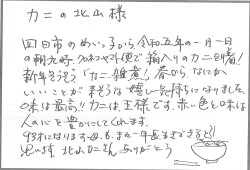 カニの北山様
四日市のめいっ子から、令和五年の一月一日
の朝九時、クロネコヤマト便で箱入りのカニ到着!
新年そうそう「カニ雑煮」春からなにか
いいことが来そうな嬉しい気持ちになりました。
味は最高!!カニは、王様です。赤い色と味は
人の心を豊かにしてくれます。
93才になります母も、また一年長生きできると
思います 北山カニさん ありがとう